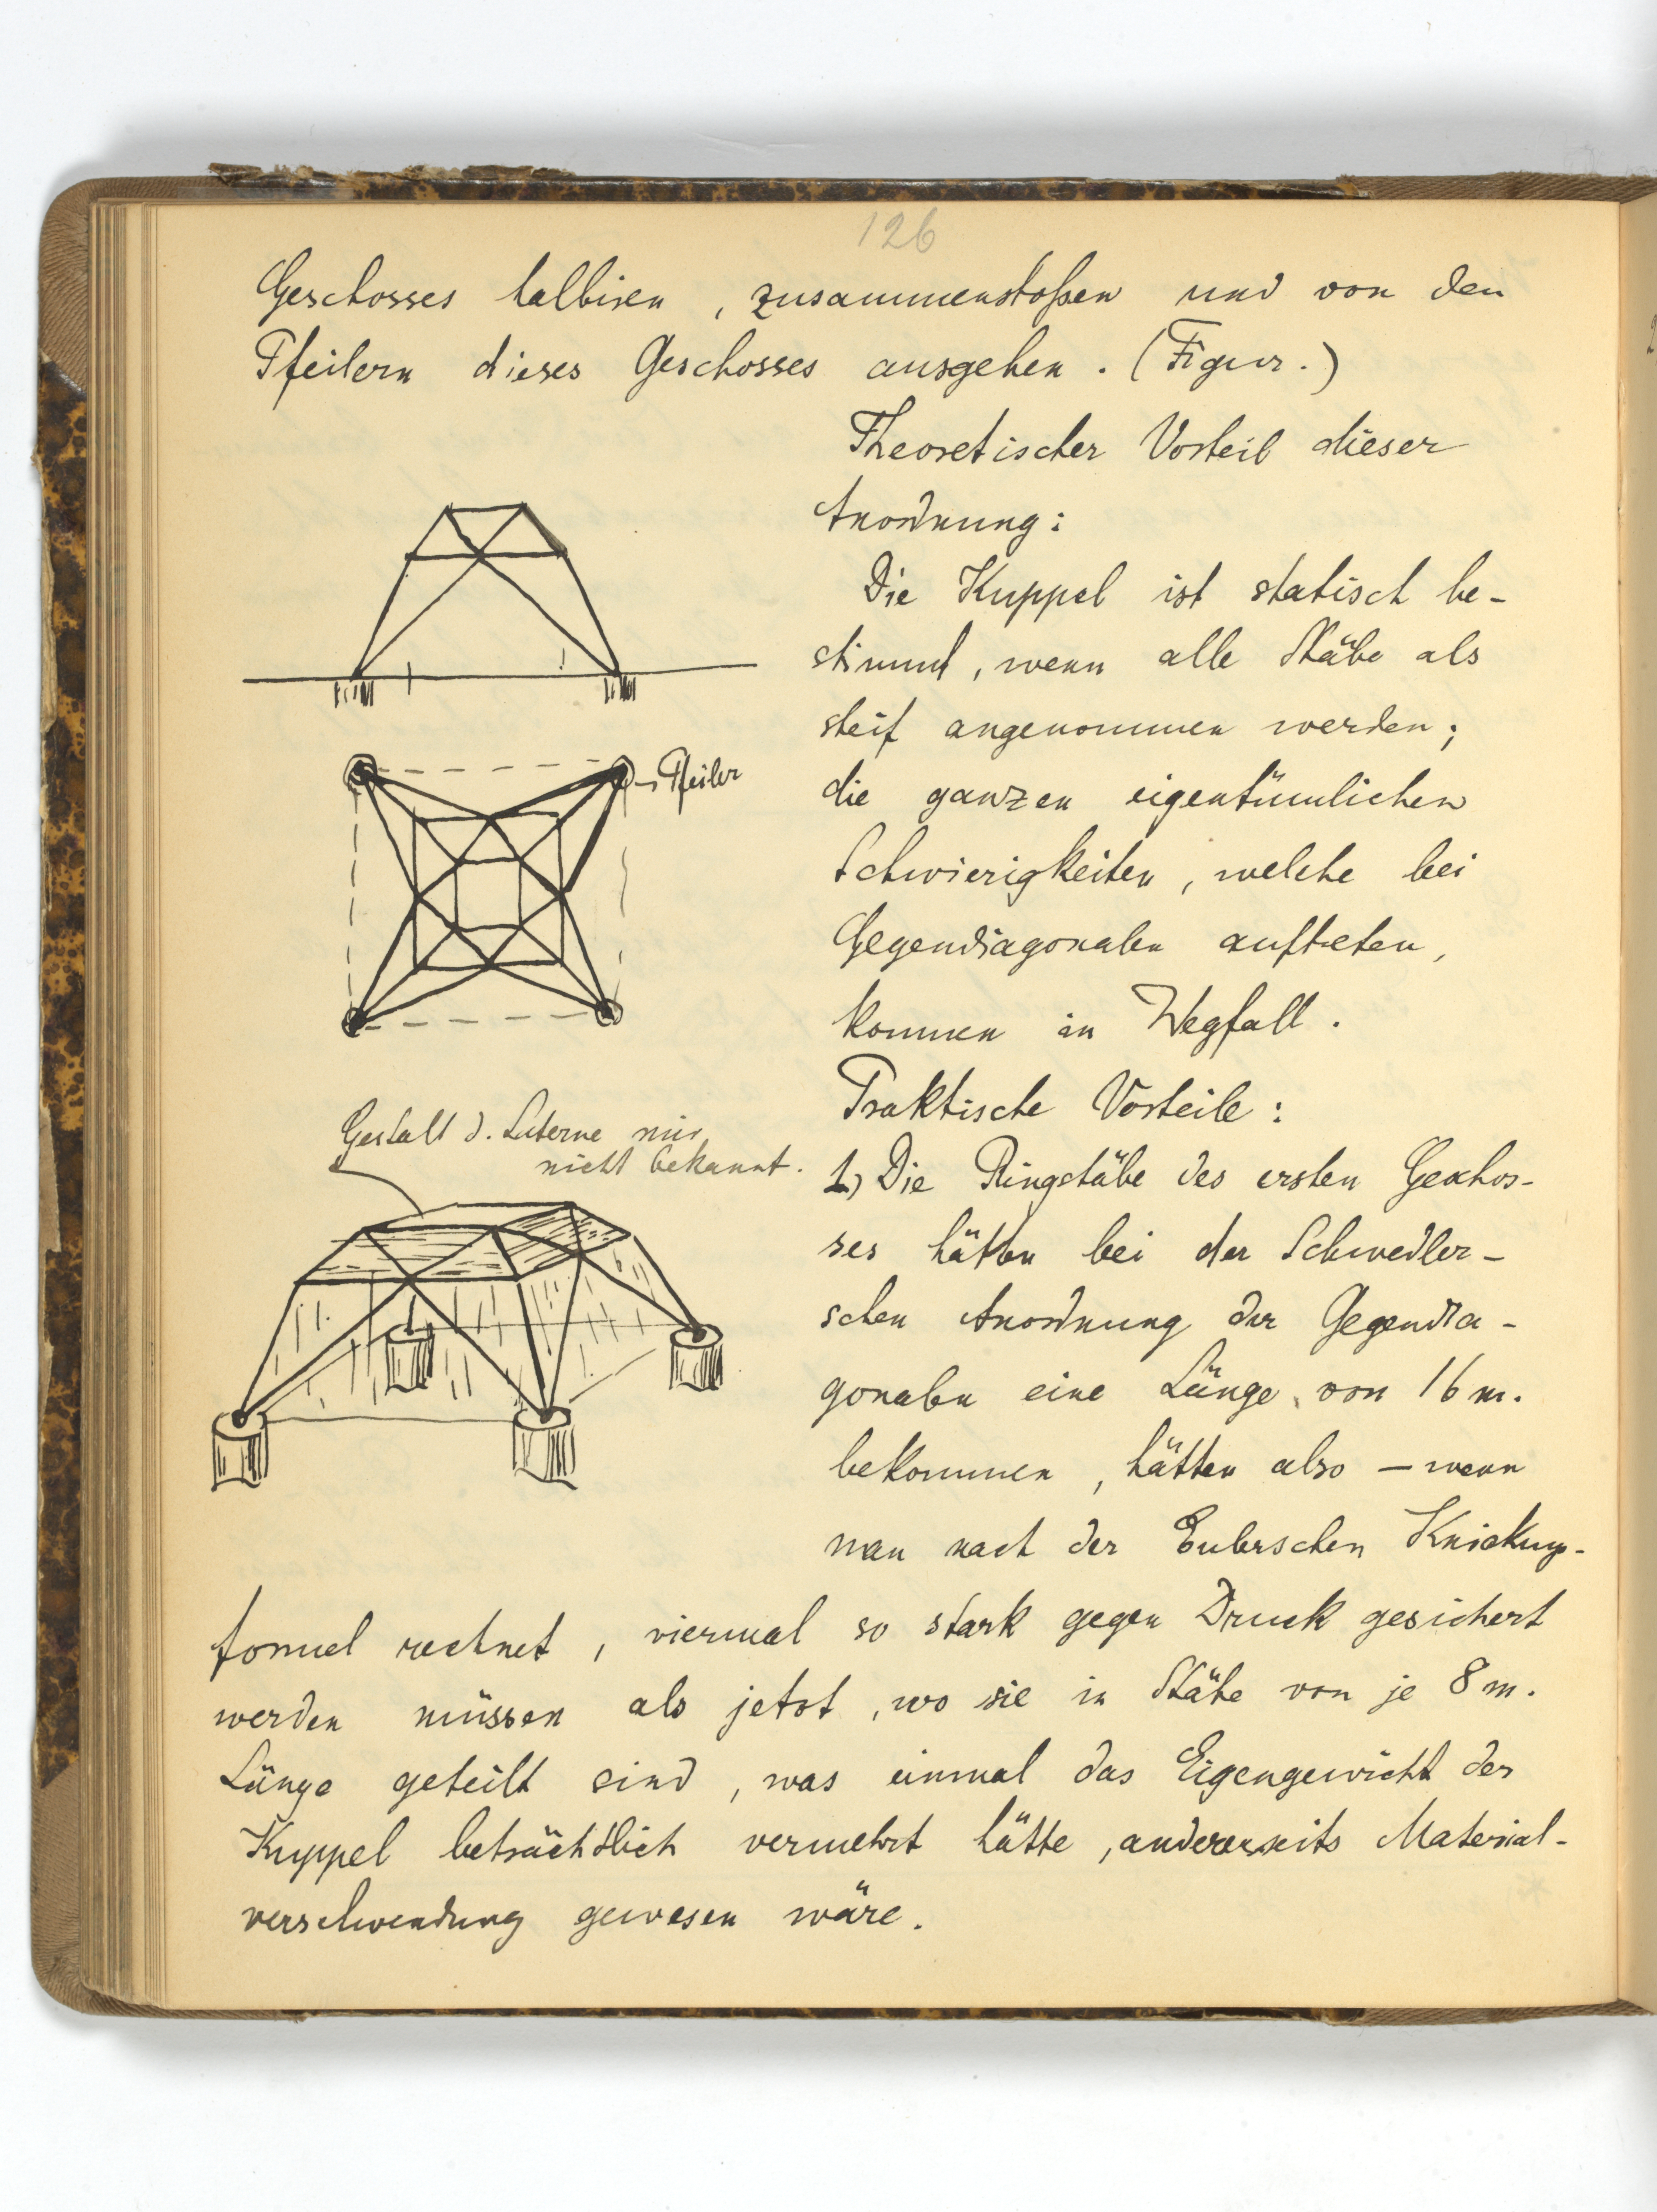 126
Geschosses halbiren, zusammenstoßen und von den
Pfeilern dieses Geschosses ausgehen. (Figur.)
Theoretischer Vorteil dieser
Anordnung:
Die Kuppel ist statisch be-
stimmt, wenn alle Stäbe als
steif angenommen werden;
die ganzen eigentümlichen
Schwierigkeiten, welche bei
Gegendiagonalen auftreten,
kommen in Wegfall.
Praktische Vorteile:
1) Die Ringstäbe des ersten Geschos-
ses hätten bei der Schwedler-
schen Anordnung der Gegendia-
gonalen eine Länge von 16 m.
bekommen, hätten also — wenn
man nach der Eulerschen Knickungs-
formel rechnet, viermal so stark gegen Druck gesichert
werden müssen als jetzt, wo sie in Stäbe von je 8 m.
Länge geteilt sind, was einmal das Eigengewicht der
Kuppel beträchtlich vermehrt hätte, andererseits Material-
verschwendung gewesen wäre.
Pfeiler
Gestalt d. Laterne mir
nicht bekannt.